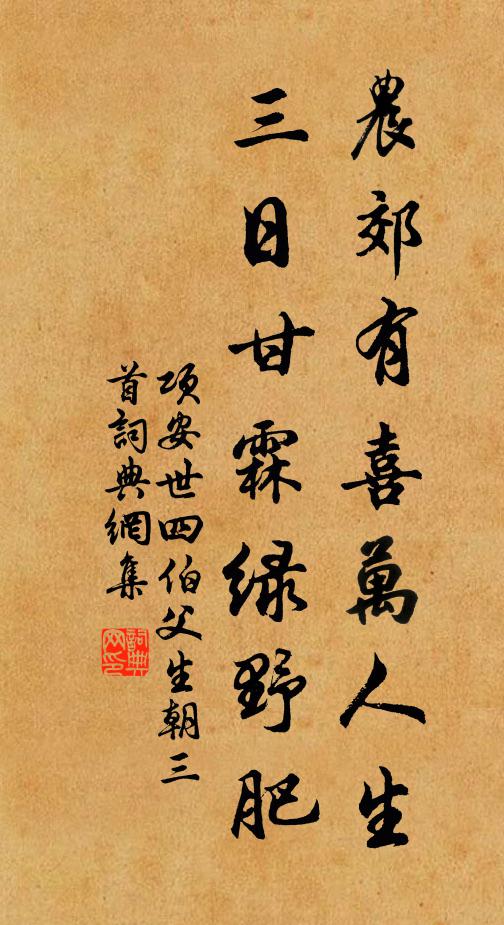 農郊有喜萬人生
三日甘霖緑野肥
項安世四伯父生朝三
首詞典網集
詞典
网印